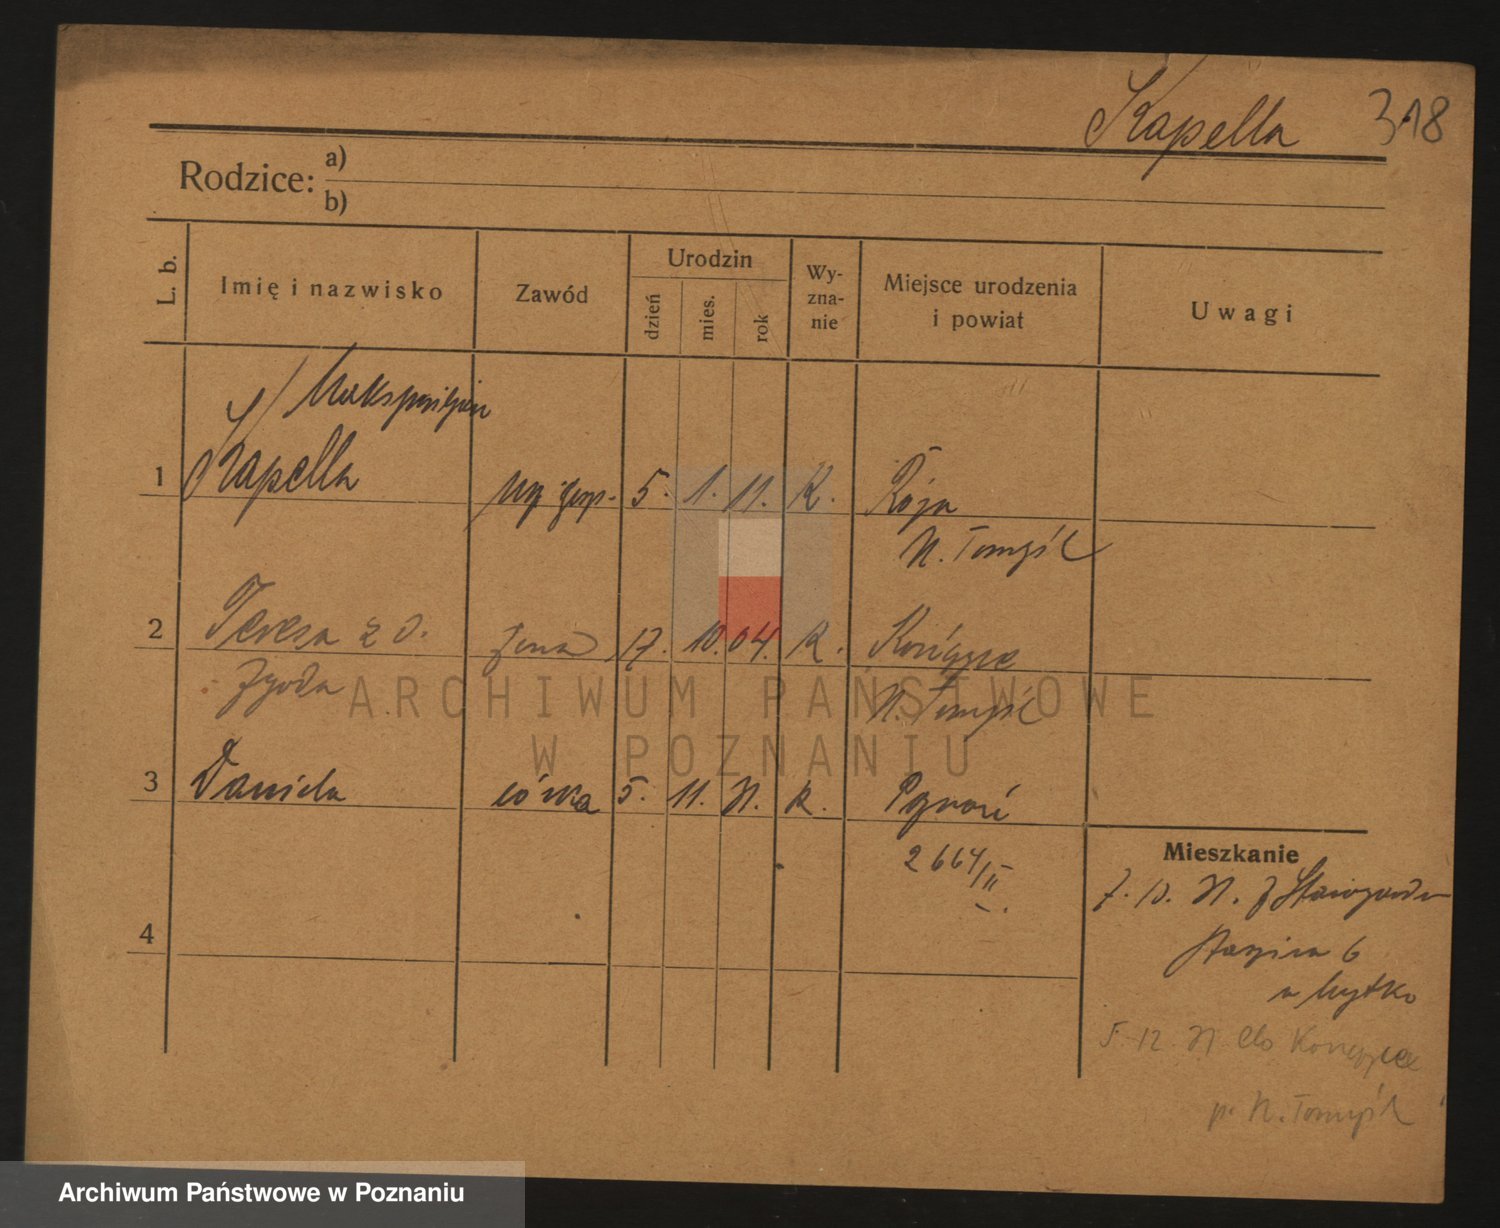 Kapella 318
Rodzice: a)
b)
L. b. Imię i nazwisko Zawód Urodzin dzień mies. rok Wy-zna-nie Miejsce urodzenia i powiat Uwagi
Maksymiljan
1 Kapella 5. 1. 11. K. Róża
N. Tomyśl
2 Teresa z d. żona 17. 10. 04. K. Kończyce
Zgoda N. Tomyśl
ARCHIWUM PAŃSTWOWE
W POZNANIU
3 Daniela córka 5. 11. 31. k. Poznań
2664/II
Mieszkanie
7. 10. 31. z Starogardu
4
6
5. 12. 31 do
p. N. Tomyśl
Archiwum Państwowe w Poznaniu